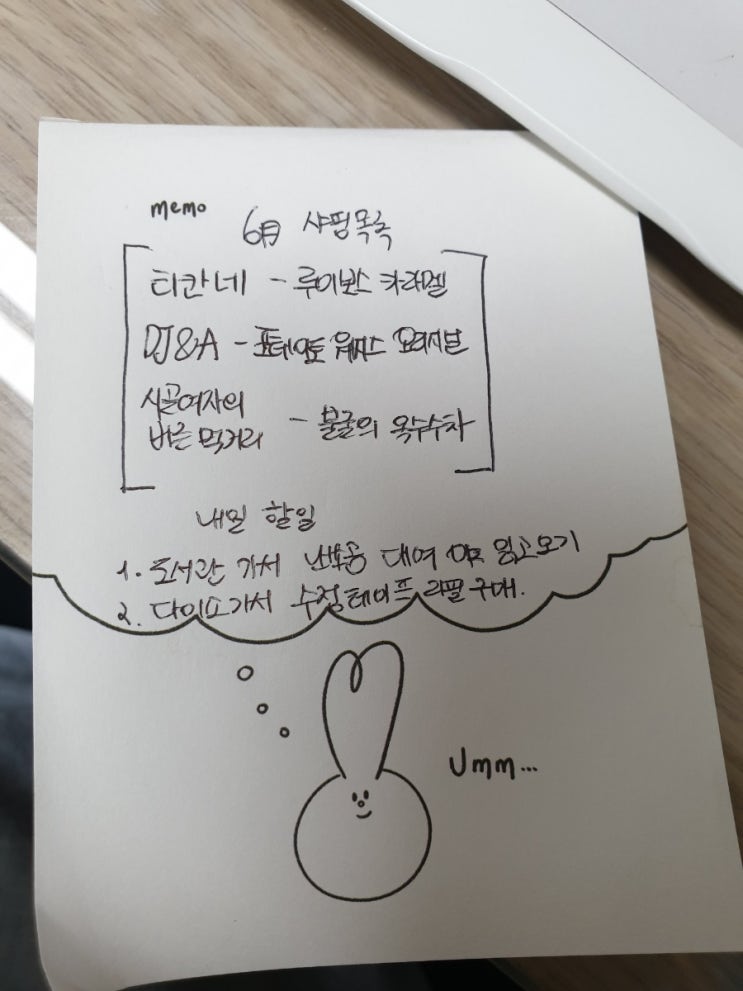 memo
6月 샤핑목록
티칸네 - 루이보스 카라멜
DJ&A - 포테이토 웨지스 오리지널
시골여자의
바른 먹거리 - 불굴의 옥수수차
내일 할일
1. 도서관 가서 대여 읽고오기
2. 다이소가서 수정테이프 리필 구매.
Umm...